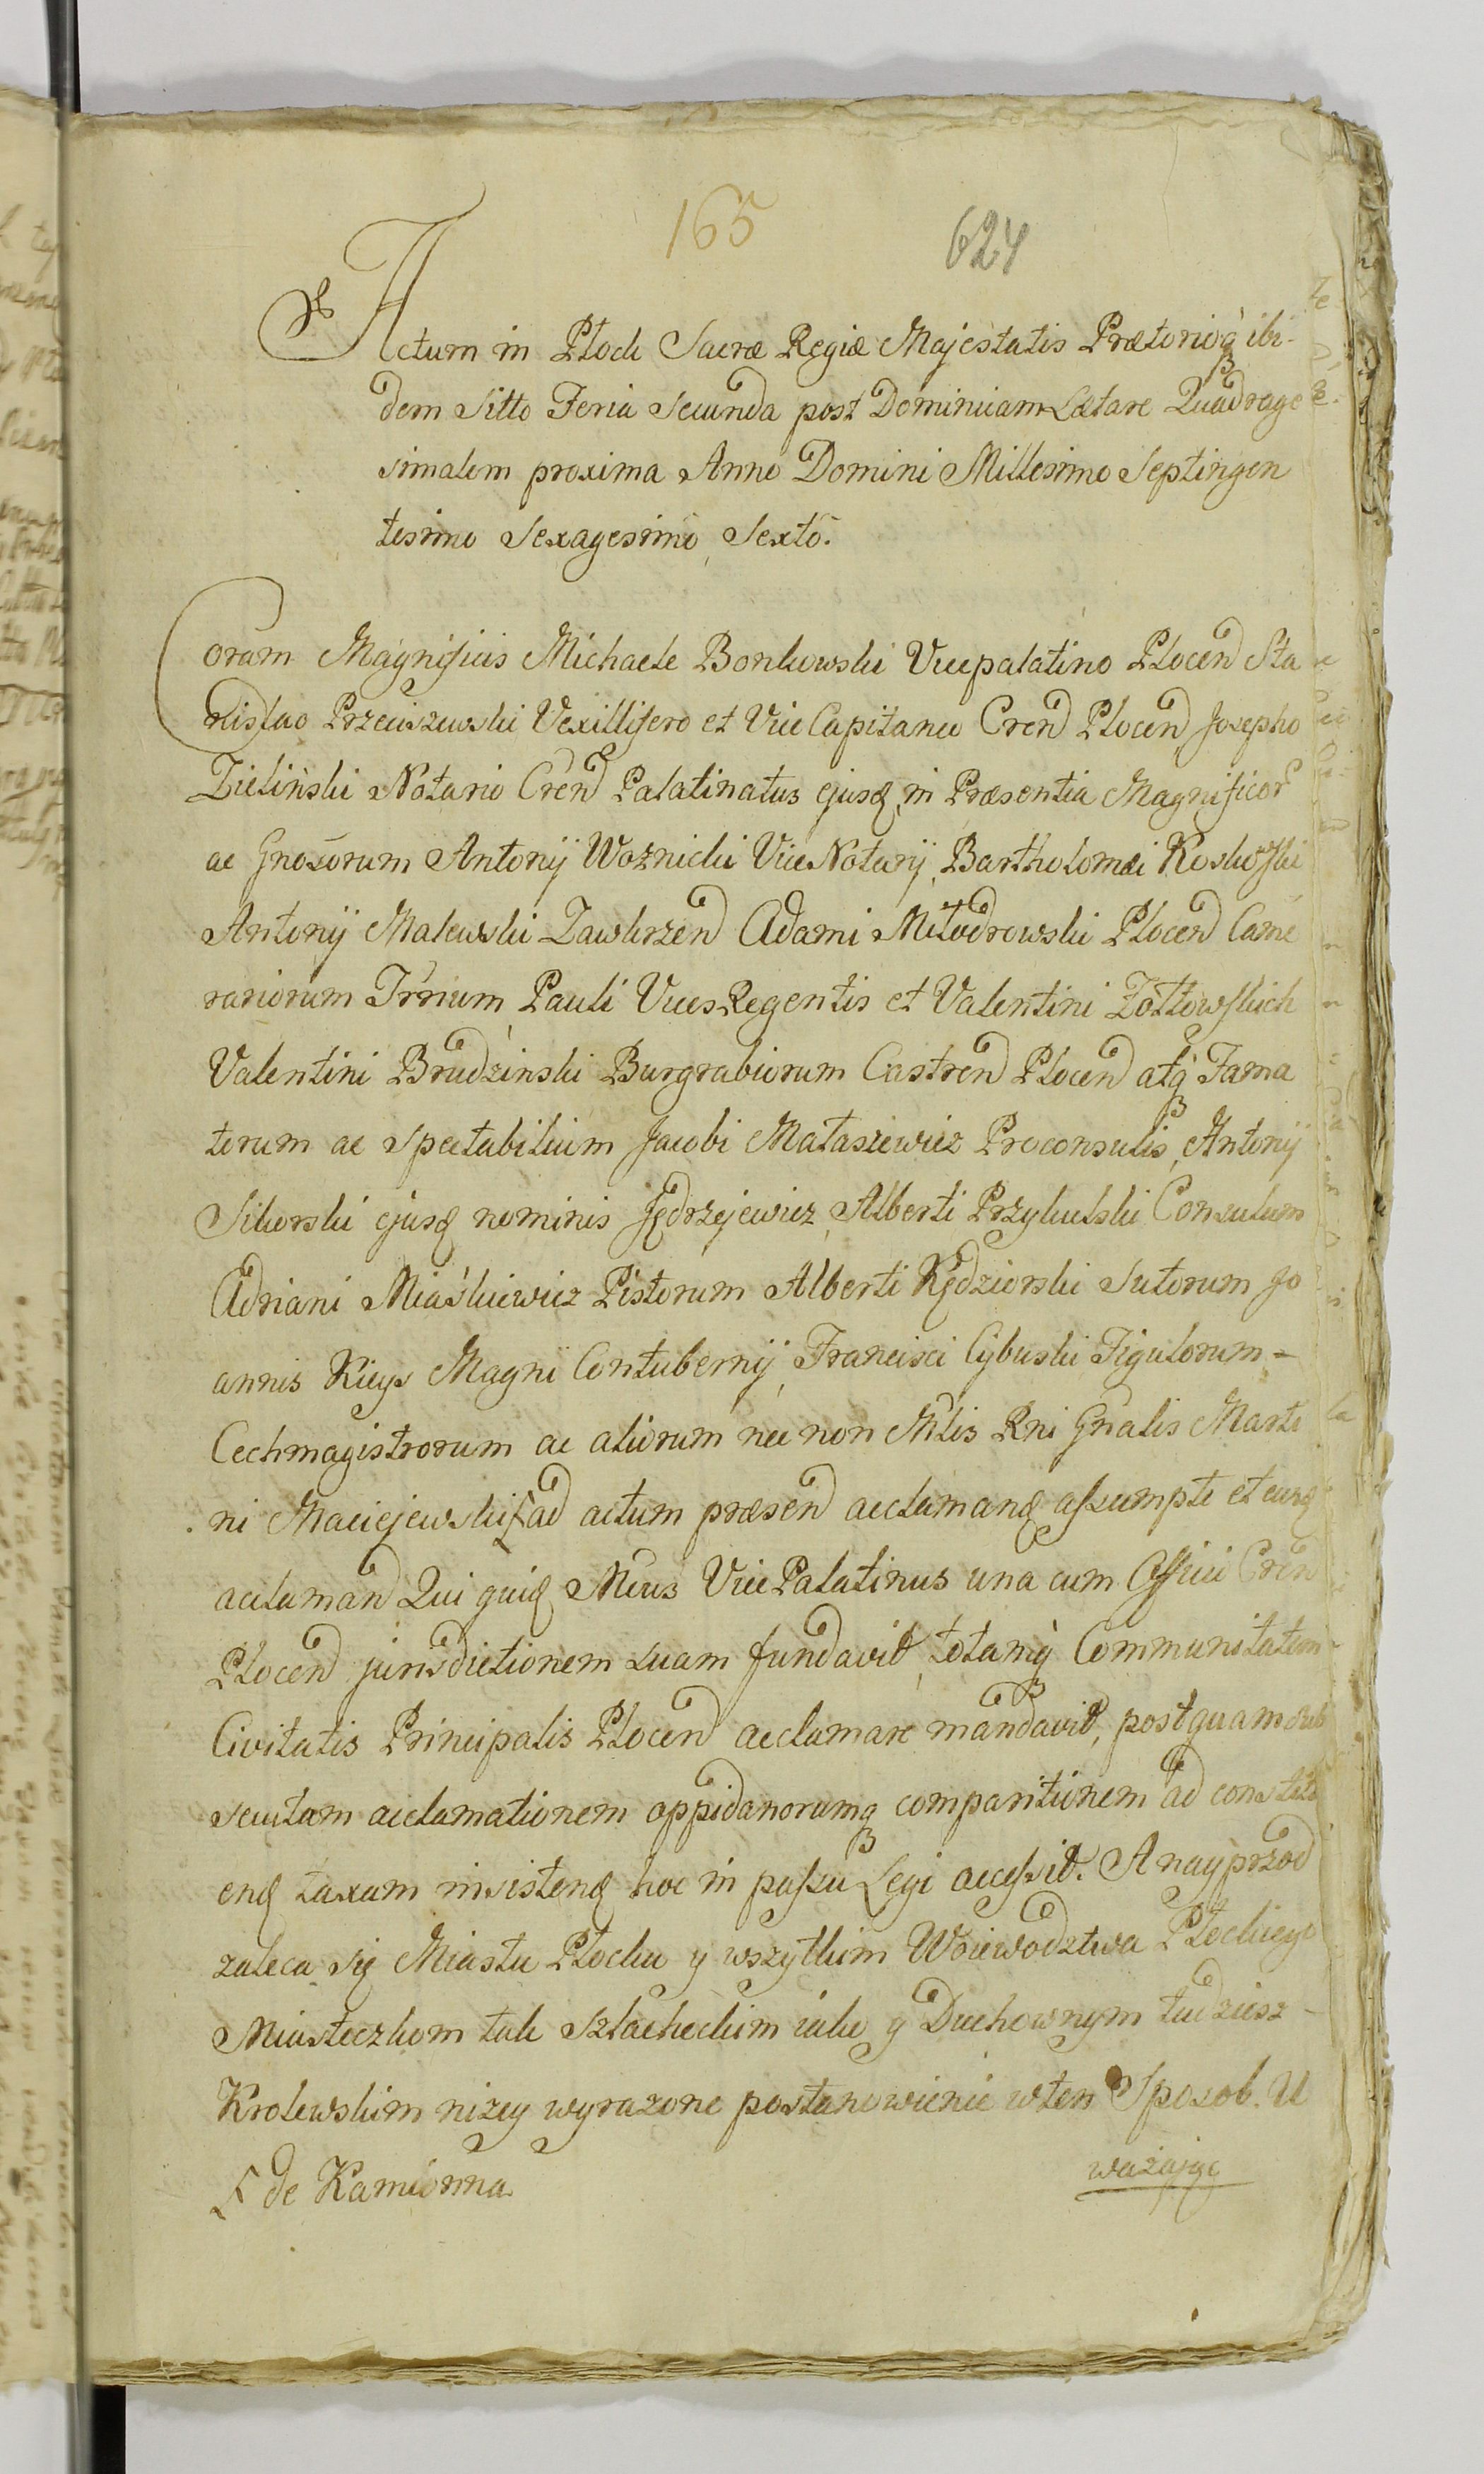 165 624
Actum in Płock Sacræ Regiæ Majestatis Prætorioq ibi-
dem Sitto Feria Secunda post Dominicam Lætare Quadrage
simalem proxima Anno Domini Millesimo Septingen
tesimo Sexagesimo Sexto.
Coram Magnificis Michaele Bonkowski Vicepalatino Plocen Sta
nislao Przeciszewski Vexillifero et Vice Capitaneo Cren Plocen Josepho
Zielinski Notario Cren Palatinatus ejusd in Præsentia Magnificor
ac Gnosorum Antonij Woźnicki Vice Notarij, Bartholomæi
Antonij Malewski Zawkrzen Adami Młodrowski Plocen Came
rariorum Trrium Pauli Vices Regentis et Valentini Zołtowskich
Valentini Brudzinski Burgrabiorum Castren Plocen atq Fama
torum ac Spectabilium Jacobi Mataszewicz Proconsulis, Antonij
Sikorski ejusd nominis Jędrzejewicz, Alberti Przykulski Consulum
Adriani Miaśkiewicz Pistorum Alberti Kędziorski Sutorum Jo
annis Kieys Magni Contubernij, Francisci Cybuski Figulorum =
Cechmagistrorum ac aliorum nec non Mtis Rni Gnalis Marti
ni Maciejewski ad actum præsen acclamand assumpti et eund
acclaman Qui quid Mcus Vice Palatinus una cum Officio Cren
Plocen jurisdictionem suam fundavit, totamq Communitatem
Civitatis Principalis Plocen acclamare mandavit, postquam sub
secutam acclamationem oppidanorumq comparitionem ad constitu
end taxam insistend hoc in passu Legi accessit. A nayprzod
zaleca się Miastu Płocku y wszytkim Woiewodztwa Płockiego
Miasteczkom tak Szlacheckim iako y Duchownym tudziesz
Krolewskim niżey wyrażone postanowienie w ten Sposob. U
ważając
de Kamionna